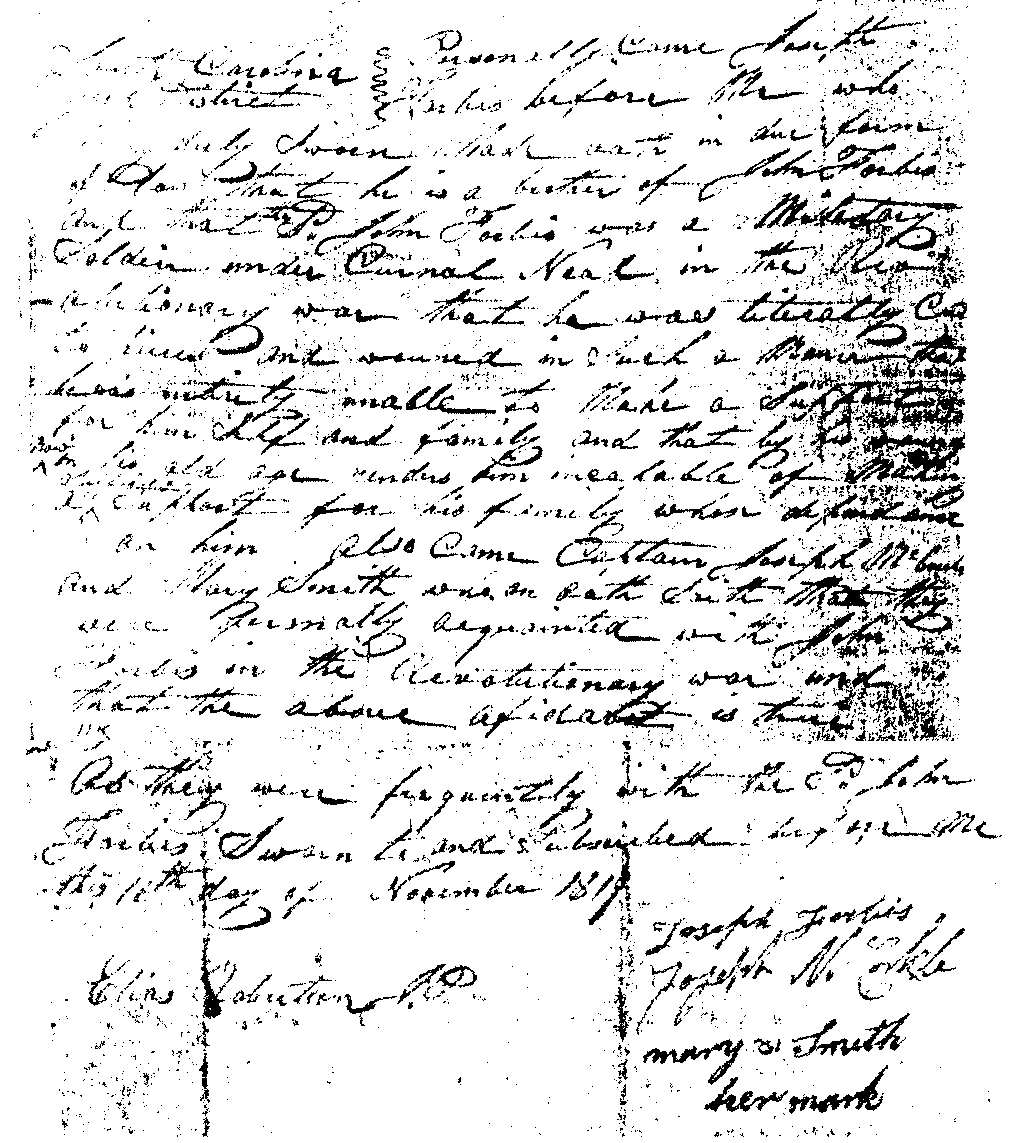 South Carolina } Personally Came Joseph
District } Forbis before Me who
duly Sworn Made oath in due form
of Law That he is a brother of John Forbis
and that the Sd. John Forbis was a Military
Soldier under Curnal Neal in the Rev
olutionary war that he was literally Cut
to pieces and wound in Such a Maner that
he was intirely unable to Make a Support
for him Self and family and that by his
now in his old age renders him incapable of Makin
a Support for his family whose dependance
on him also Came Captain Joseph McCorkle
and Mary Smith who on oath Saith that they
were Personally acquainted with John
Forbis in the Revolutionary war and
that the above afidavit is true
As they were frequintly with the Sd. John
Forbis Sworn to and Subscribed before Me
this 10th day of November 1819
Joseph Forbis
Elias Robertson J.P.
Joseph Mc Corkle
mary Smith
her mark